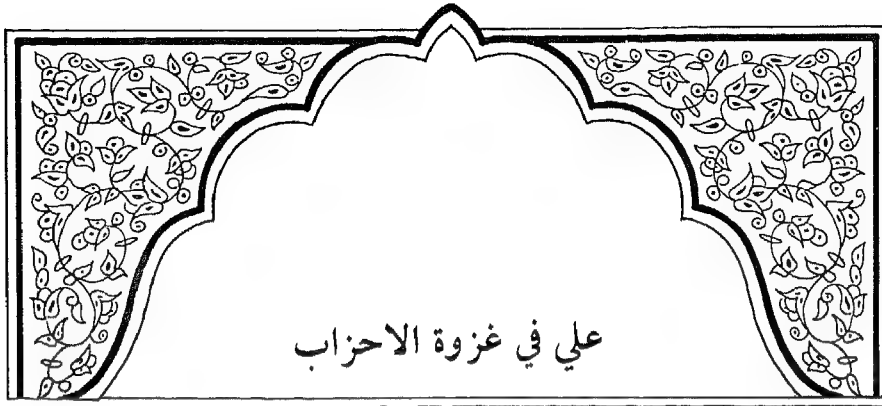 علي في غزوة الاحزاب